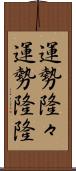 運勢隆々
運勢隆隆